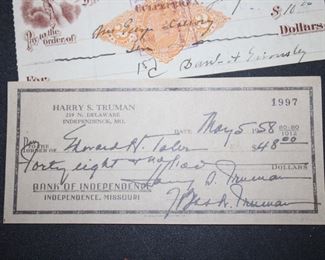 CULPEPER
$ 10.00
Pay to the
order of
Dollars
Ten
For
HARRY S. TRUMAN
219 N. DELAWARE
INDEPENDENCE, MO.
1997
DATE May 5 1958
80-80
1012
PAY
TO THE
ORDER OF Edward H. $48.00
Forty eight & no/100 DOLLARS
BANK OF INDEPENDENCE
INDEPENDENCE, MISSOURI
Harry S. Truman
Truman